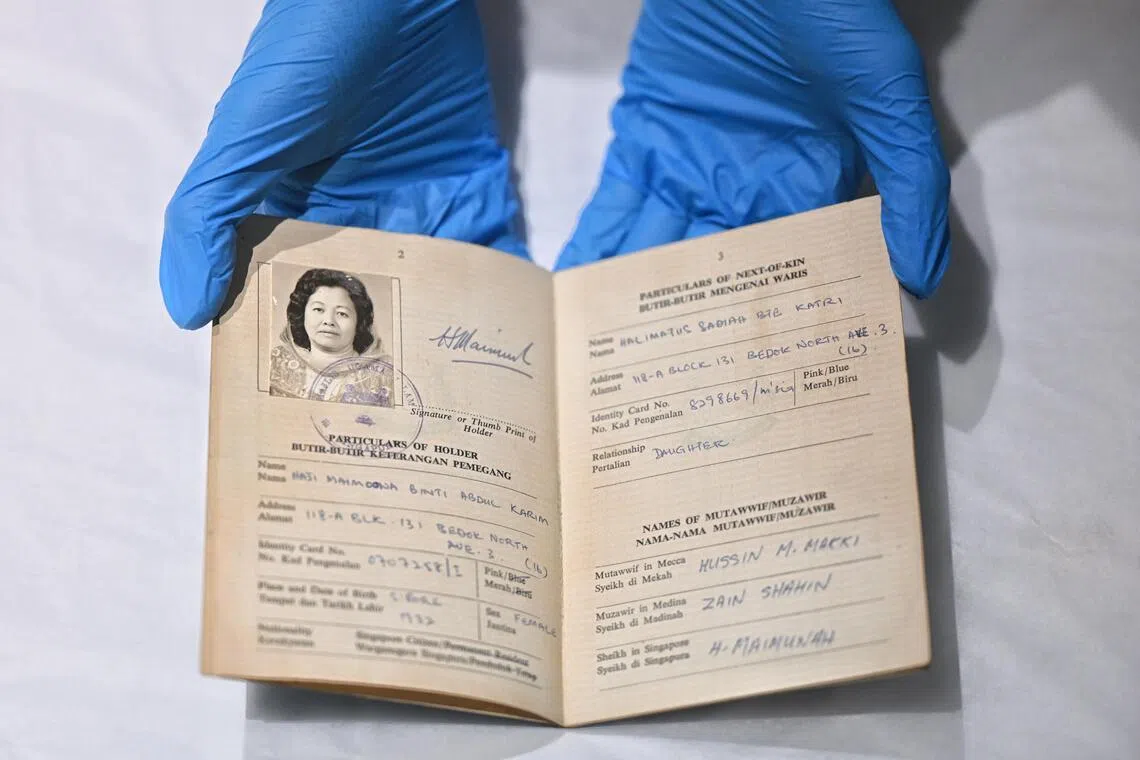 2
H Maimunah
Signature or Thumb Print of
Holder
PARTICULARS OF HOLDER
BUTIR-BUTIR KETERANGAN PEMEGANG
Name
Nama HAJI MAIMOONA BINTI ABDUL KARIM
Address
Alamat 118-A BLK. 131 BEDOK NORTH
AVE. 3. (16)
Identity Card No.
No. Kad Pengenalan 0707258/I
Pink/Blue
Merah/Biru
Place and Date of Birth
Tempat dan Tarikh Lahir S'PORE
1932
Sex
Jantina FEMALE
Nationality
Kerakyatan
Singapore Citizen/Permanent Resident
Warganegara Singapura/Penduduk Tetap
3
PARTICULARS OF NEXT-OF-KIN
BUTIR-BUTIR MENGENAI WARIS
Name
Nama HALIMATUS SADIAH BTE KATRI
Address
Alamat 118-A BLOCK 131 BEDOK NORTH AVE. 3.
(16)
Identity Card No.
No. Kad Pengenalan 8298669/
Pink/Blue
Merah/Biru
Relationship
Pertalian DAUGHTER
NAMES OF MUTAWWIF/MUZAWIR
NAMA-NAMA MUTAWWIF/MUZAWIR
Mutawwif in Mecca
Syeikh di Mekah HUSSIN M. MAKKI
Muzawir in Medina
Syeikh di Madinah ZAIN SHAHIN
Sheikh in Singapore
Syeikh di Singapura H. MAIMUNAH